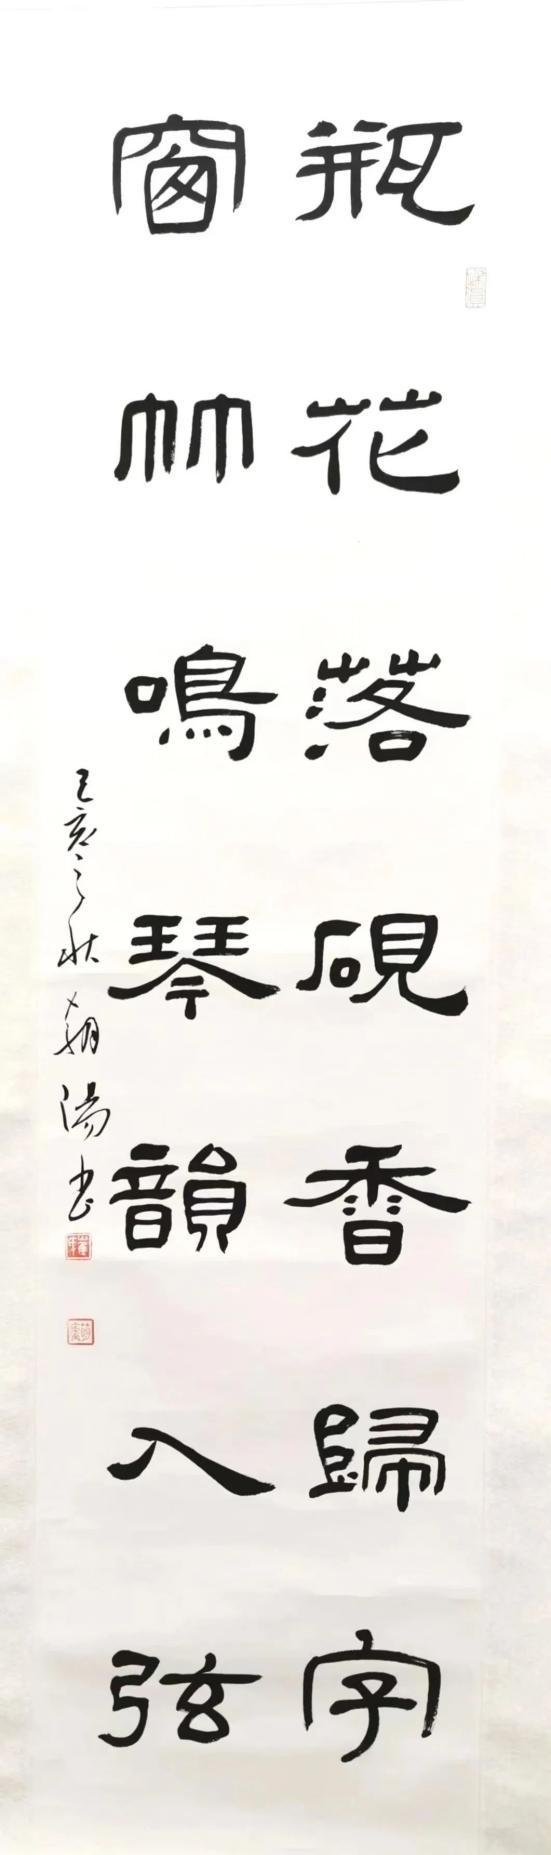 瓶花落硯香歸字
窗竹鳴琴韻入弦
己亥之秋朝陽书